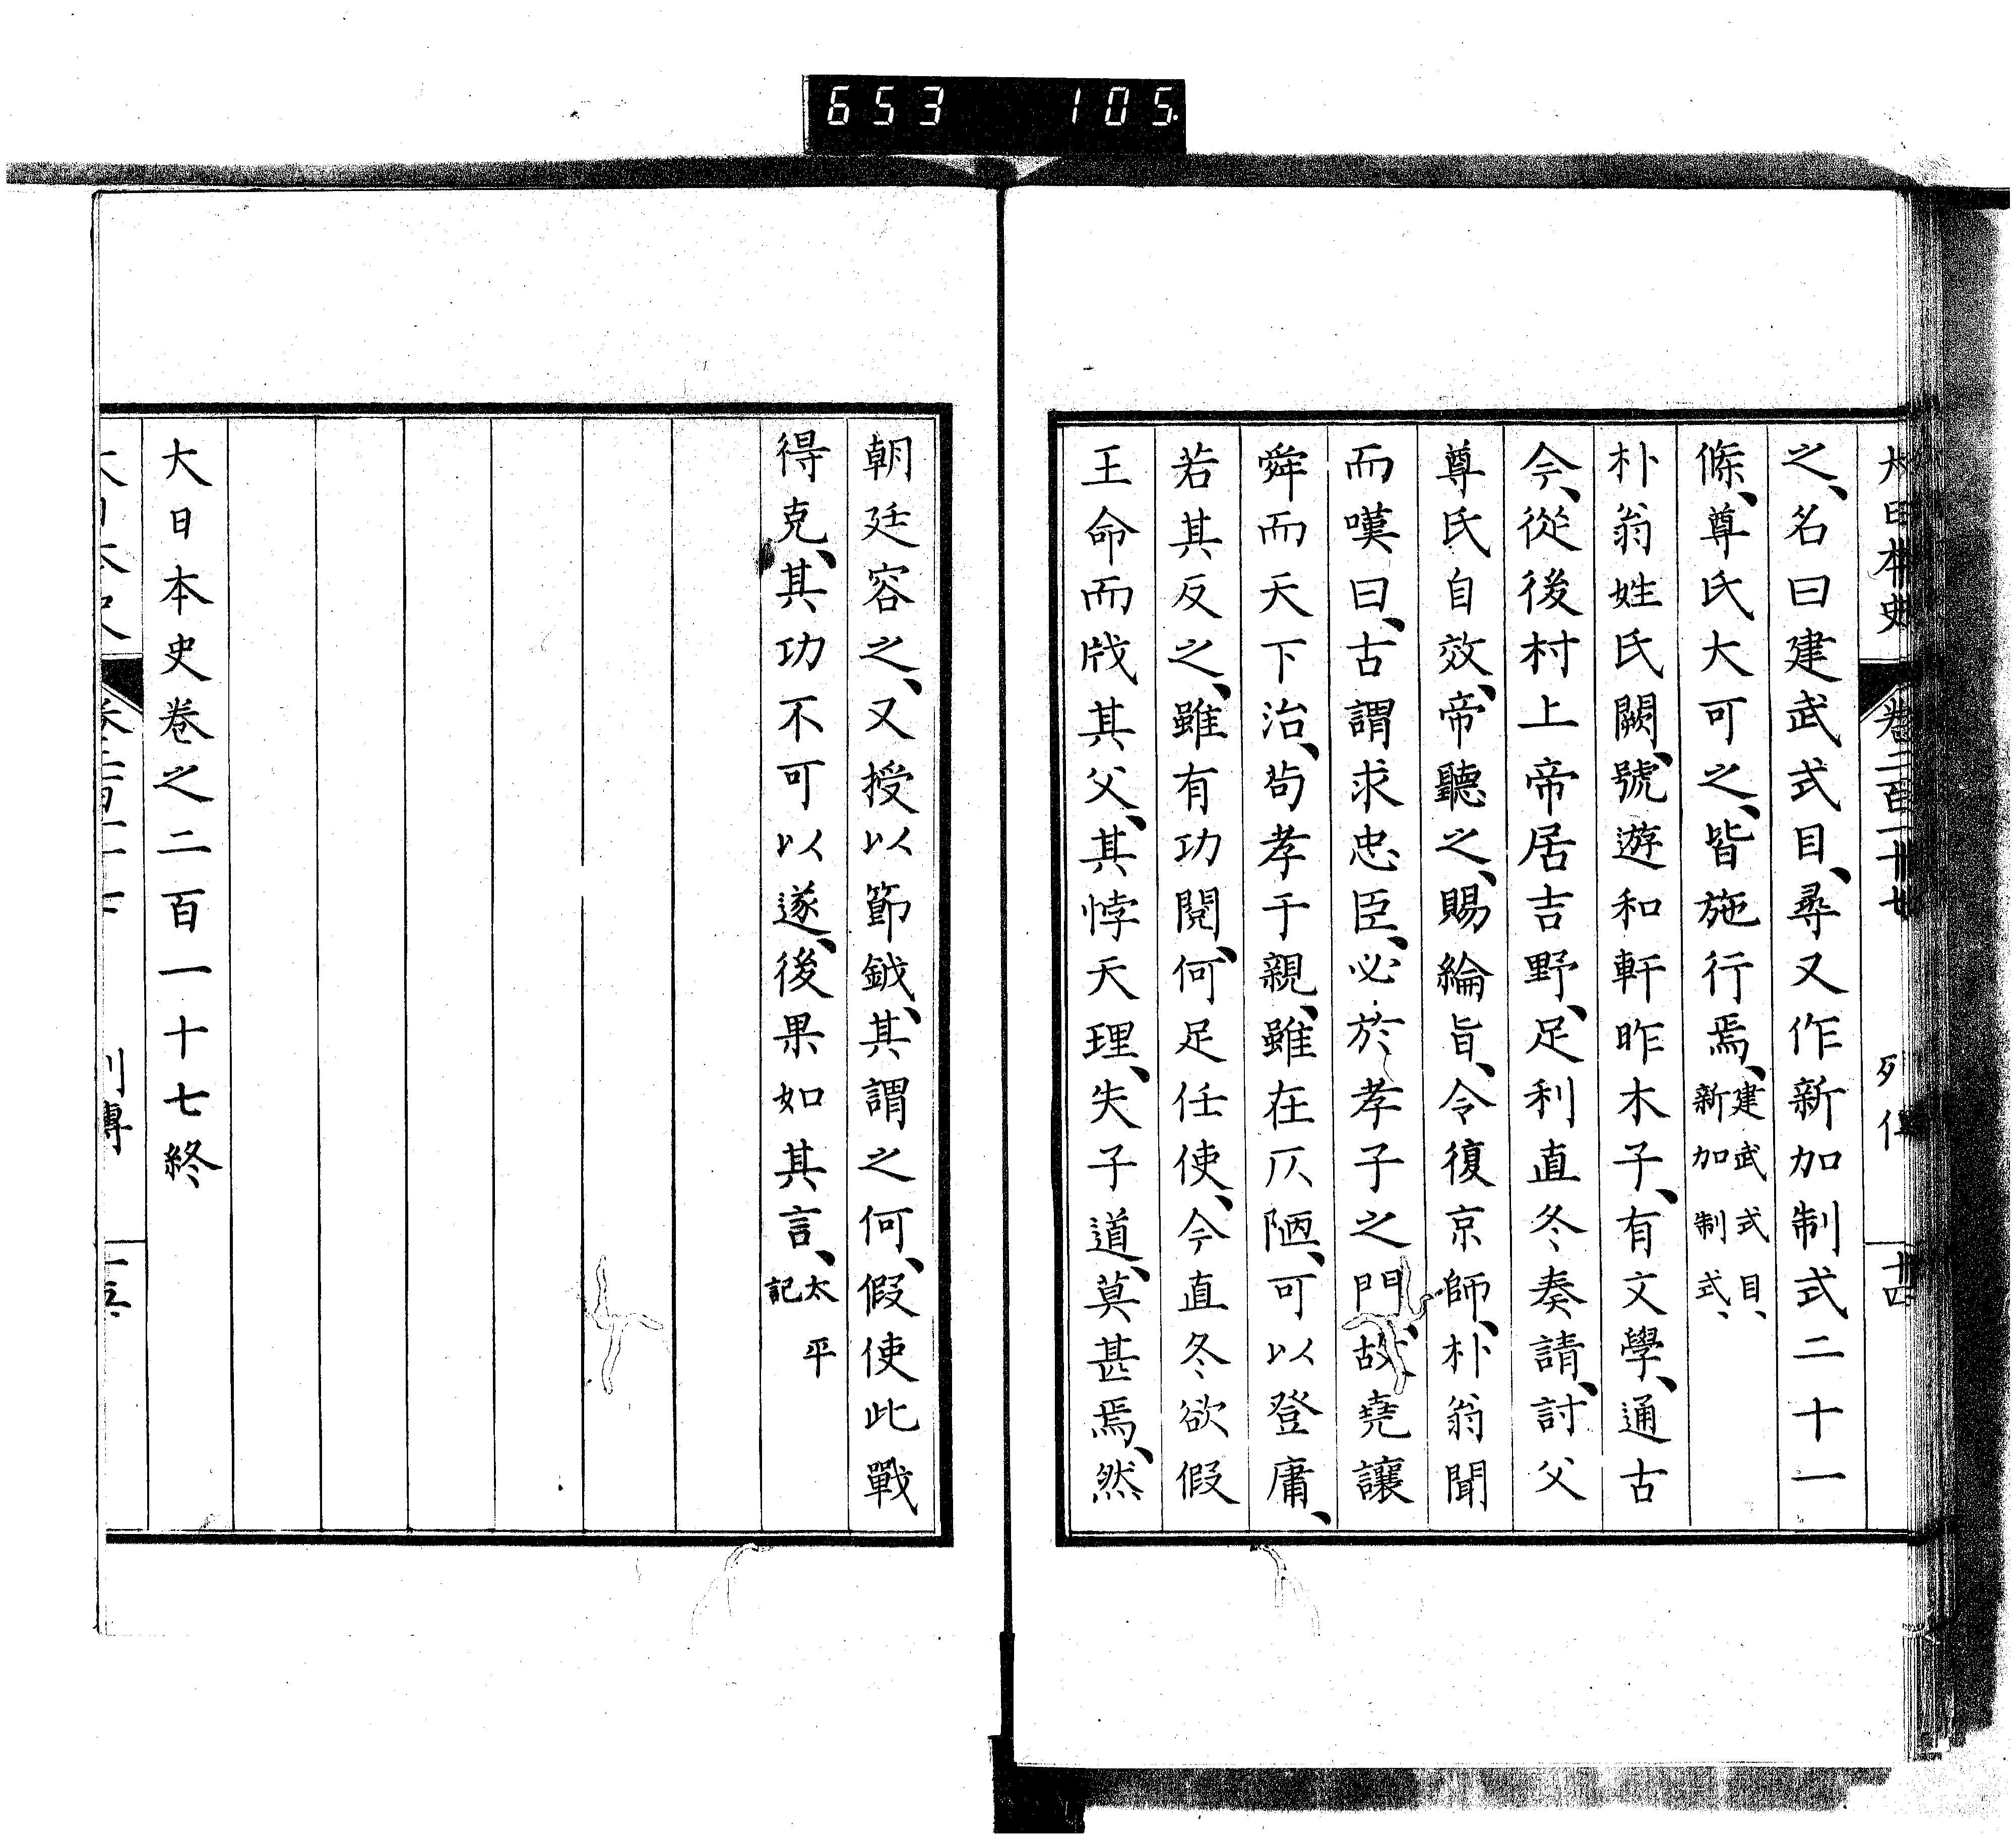 653 105
大日本史 卷二百一十七 列傳 十四
之、名曰建武式目、尋又作新加制式二十一
條、尊氏大可之、皆施行焉、建武式目、新加制式、
朴翁姓氏闕、號遊和軒昨木子、有文學、通古
今、從後村上帝居吉野、足利直冬奏請、討父
尊氏自效、帝聽之、賜綸旨、令復京師、朴翁聞
而嘆曰、古謂求忠臣、必於孝子之門、故堯讓
舜而天下治、茍孝于親、雖在仄陋、可以登庸、
若其反之、雖有功閱、何足任使、今直冬欲假
王命而戕其父、其悖天理、失子道、莫甚焉、然
朝廷容之、又授以節鉞、其謂之何、假使此戰
得克、其功不可以遂、後果如其言、太平記
大日本史卷之二百一十七終